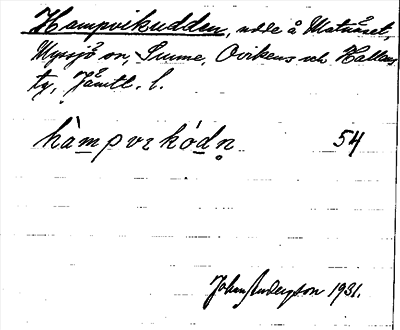 Hampvikudden, udde å Matnäset,
Myssjö sn, Sunne, Ovikens och Hallens
tg, Jämtl. l.
hàmpvɪkódn̥ 54
John Anderzon 1931.